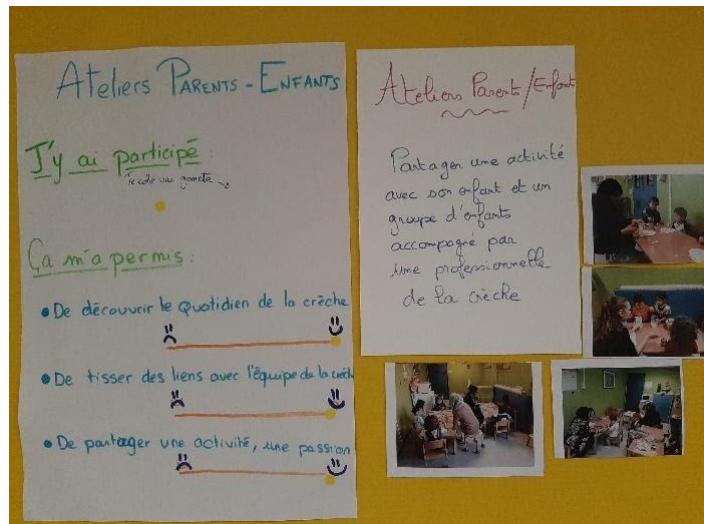 Ateliers PARENTS - ENFANTS
J'y ai participé :
je colle une gomette
Ça m'a permis :
• De découvrir le quotidien de la crèche
• De tisser des liens avec l'équipe de la crèch
• De partager une activité, une passion
Ateliers Parents/Enfant
Partager une activité
avec son enfant et un
groupe d'enfants
accompagné par
une professionnelle
de la crèche